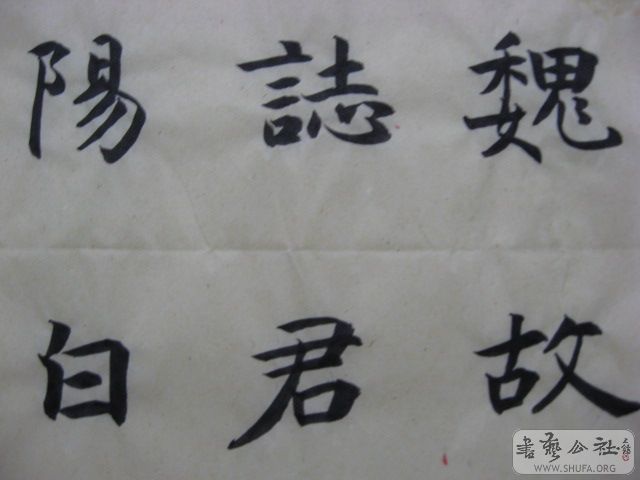 魏故
誌君
陽白
書藝公社
WWW.SHUFA.ORG